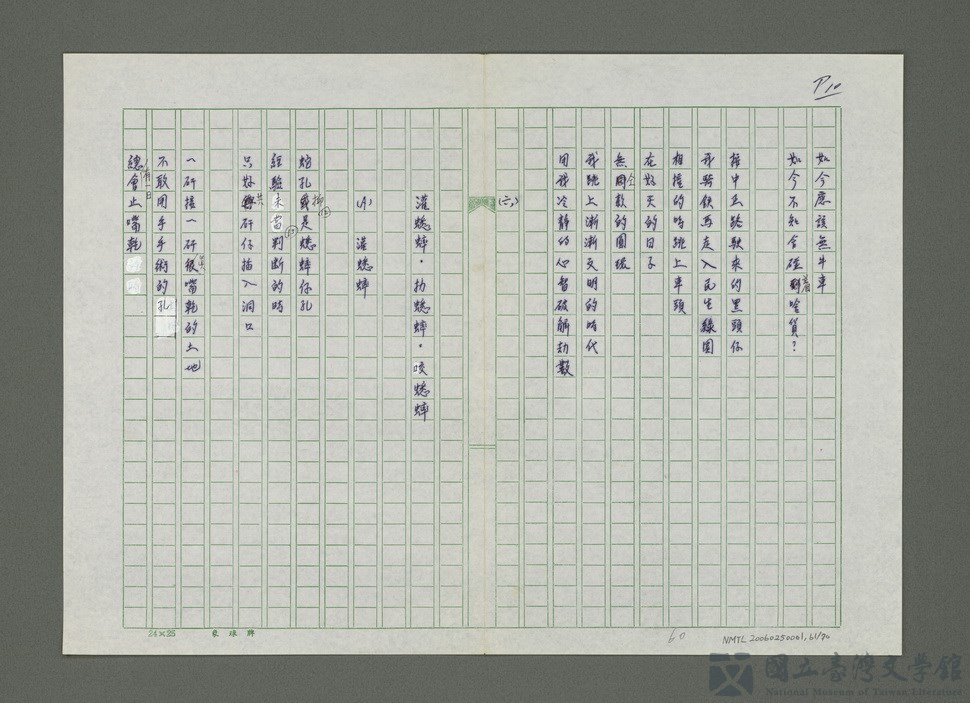 P10
如今應該無牛車
如今不知会碰著啥貨？
接中正路駛來的黑頭仔
我騎鉄馬走入民生綠園
相撞的時跳上車頭
在好天的日子
無仝款的圓環
我跳上漸漸文明的時代
用我冷靜的心智破解劫數
(六)
灌蟋蟀・扐蟋蟀・咬蟋蟀
灌蟋蟀
蚼孔抑是蟋蟀仔孔
經驗未當判斷的時
只好共矸仔插入洞口
一矸接一矸喙嘴乾的土地
不敢用手手術的孔
總有一日會止嘴乾
24×25
60
NMTL 20060250001, 61/70
國立臺灣文学館
National Museum of Taiwan Literature